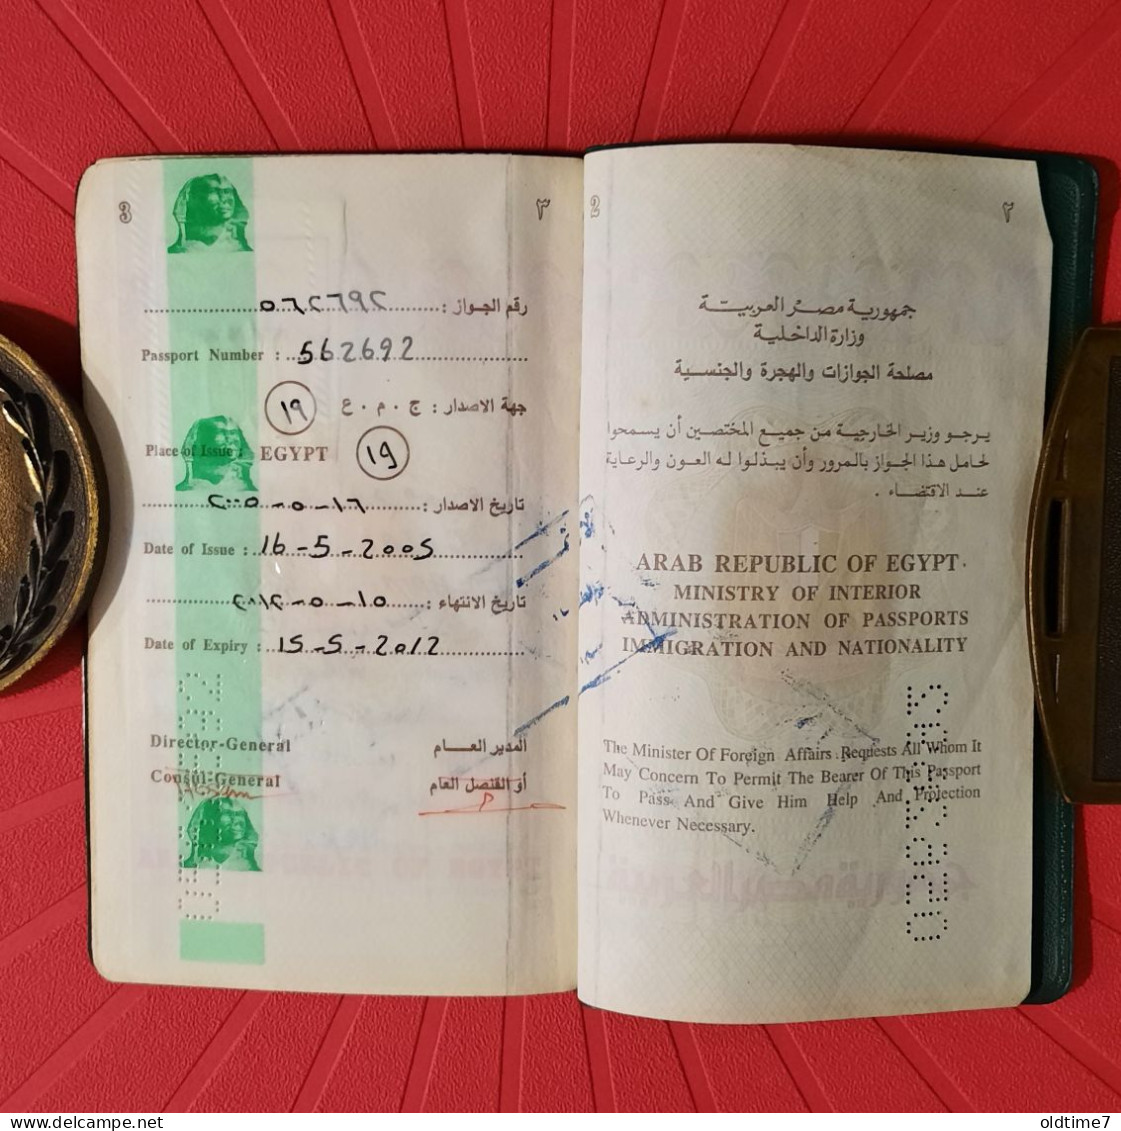 3 ٣
رقم الجواز : ٥٦٢٦٩٢
Passport Number : 562692
جهة الاصدار : ج . م . ع ١٩
Place of Issue : EGYPT 19
تاريخ الاصدار : ١٦-٥-٢٠٠٥
Date of Issue : 16-5-2005
تاريخ الانتهاء : ١٥-٥-٢٠١٢
Date of Expiry : 15-5-2012
Director-General المدير العـــام
Consul-General أو القنصل العام
2 ٢
جمهورية مصر العربية
وزارة الداخلية
مصلحة الجوازات والهجرة والجنسية
يرجو وزير الخارجية من جميع المختصين أن يسمحوا
لحامل هذا الجواز بالمرور وأن يبذلوا له العون والرعاية
عند الاقتضاء .
ARAB REPUBLIC OF EGYPT
MINISTRY OF INTERIOR
ADMINISTRATION OF PASSPORTS
IMMIGRATION AND NATIONALITY
The Minister Of Foreign Affairs Requests All Whom It
May Concern To Permit The Bearer Of This Passport
To Pass And Give Him Help And Projection
Whenever Necessary.
جمهورية مصر العربية
oldtime7